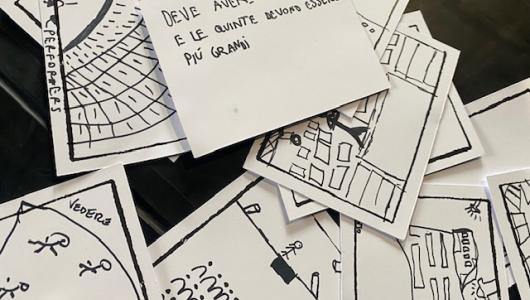 DEVE AVERE
E LE QUINTE DEVONO ESSERE
PIÙ GRANDI
PERFORMERS
VEDERE